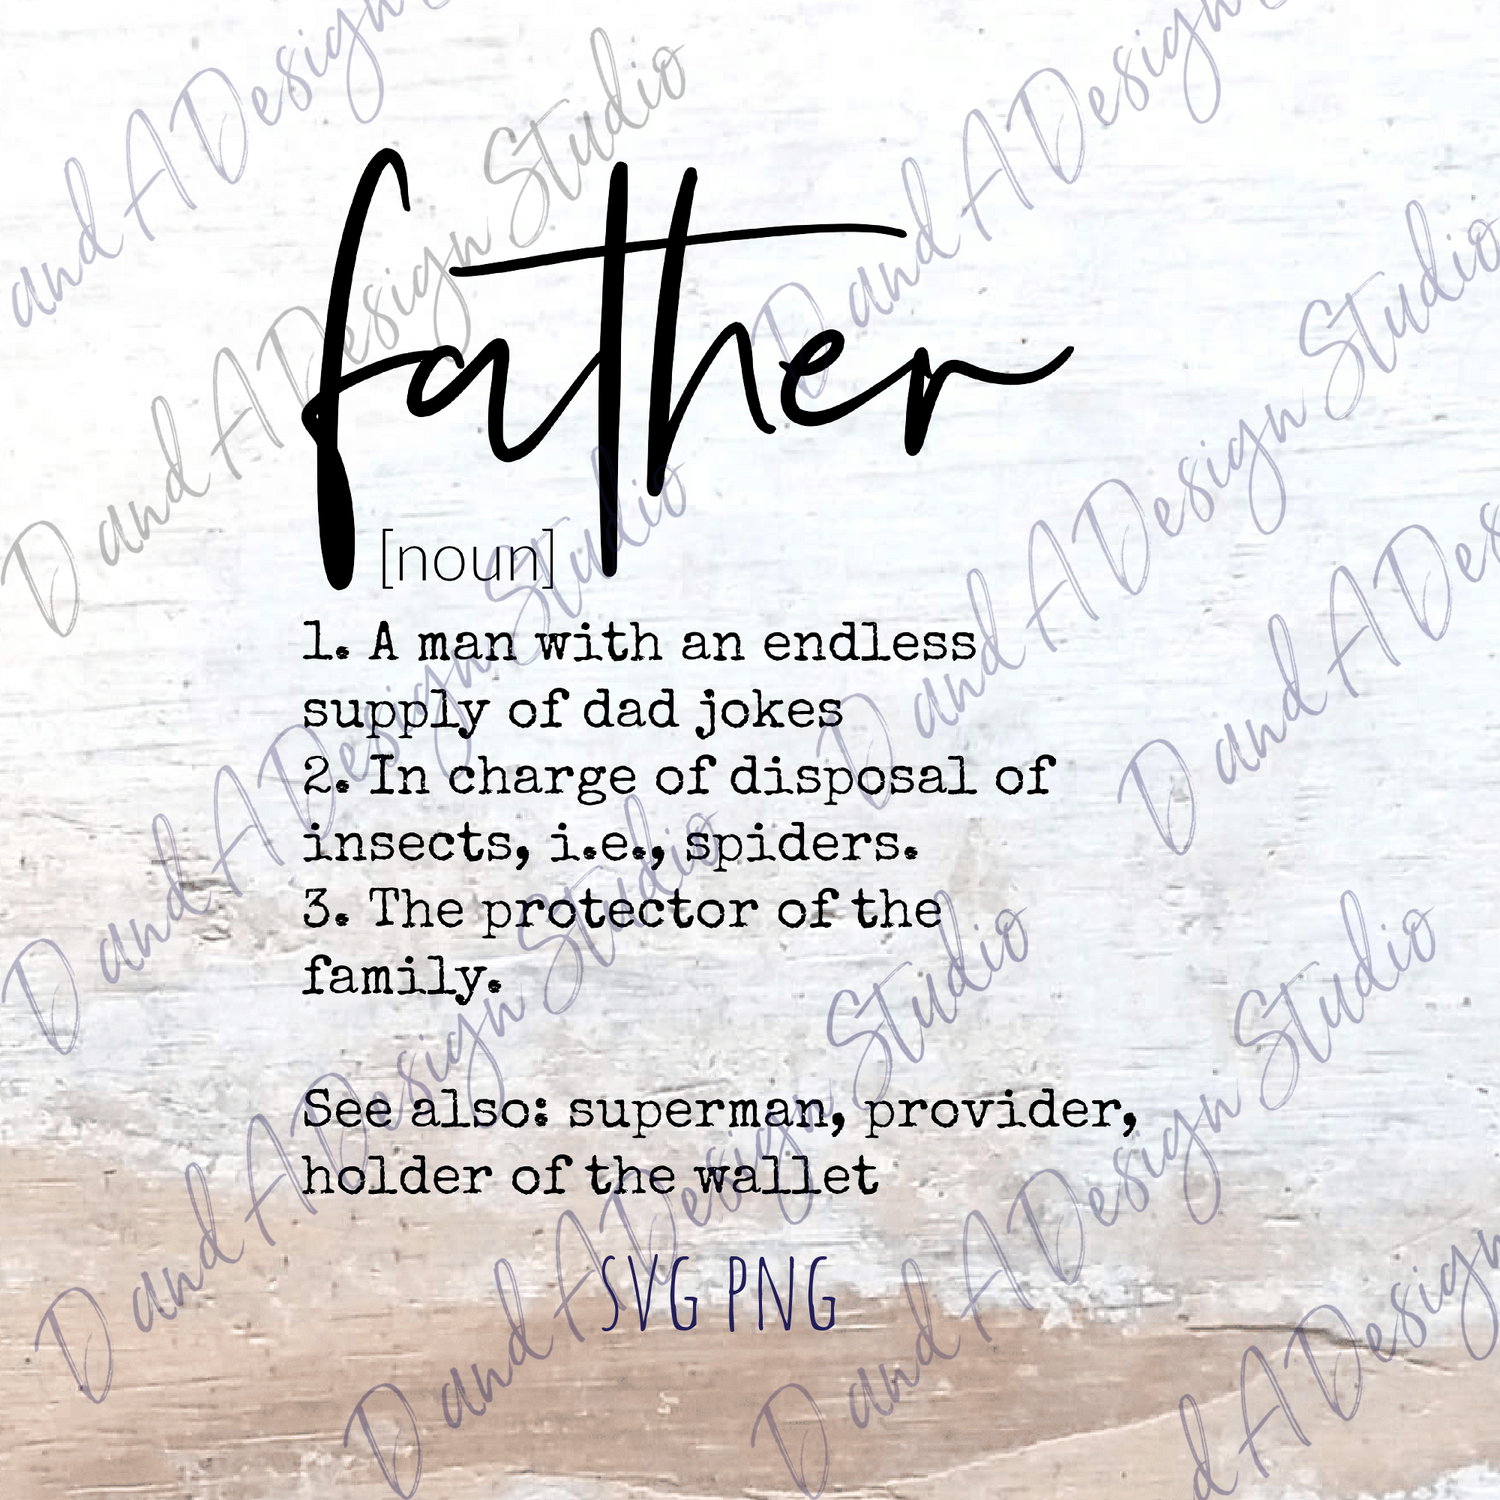 father
[noun]
1. A man with an endless
supply of dad jokes
2. In charge of disposal of
insects, i.e., spiders.
3. The protector of the
family.
See also: superman, provider,
holder of the wallet
SVG PNG
D and A Design Studio
D and A Design Studio
D and A Design Studio
D and A Design Studio
D and A Design Studio
D and A Design Studio
D and A Design Studio